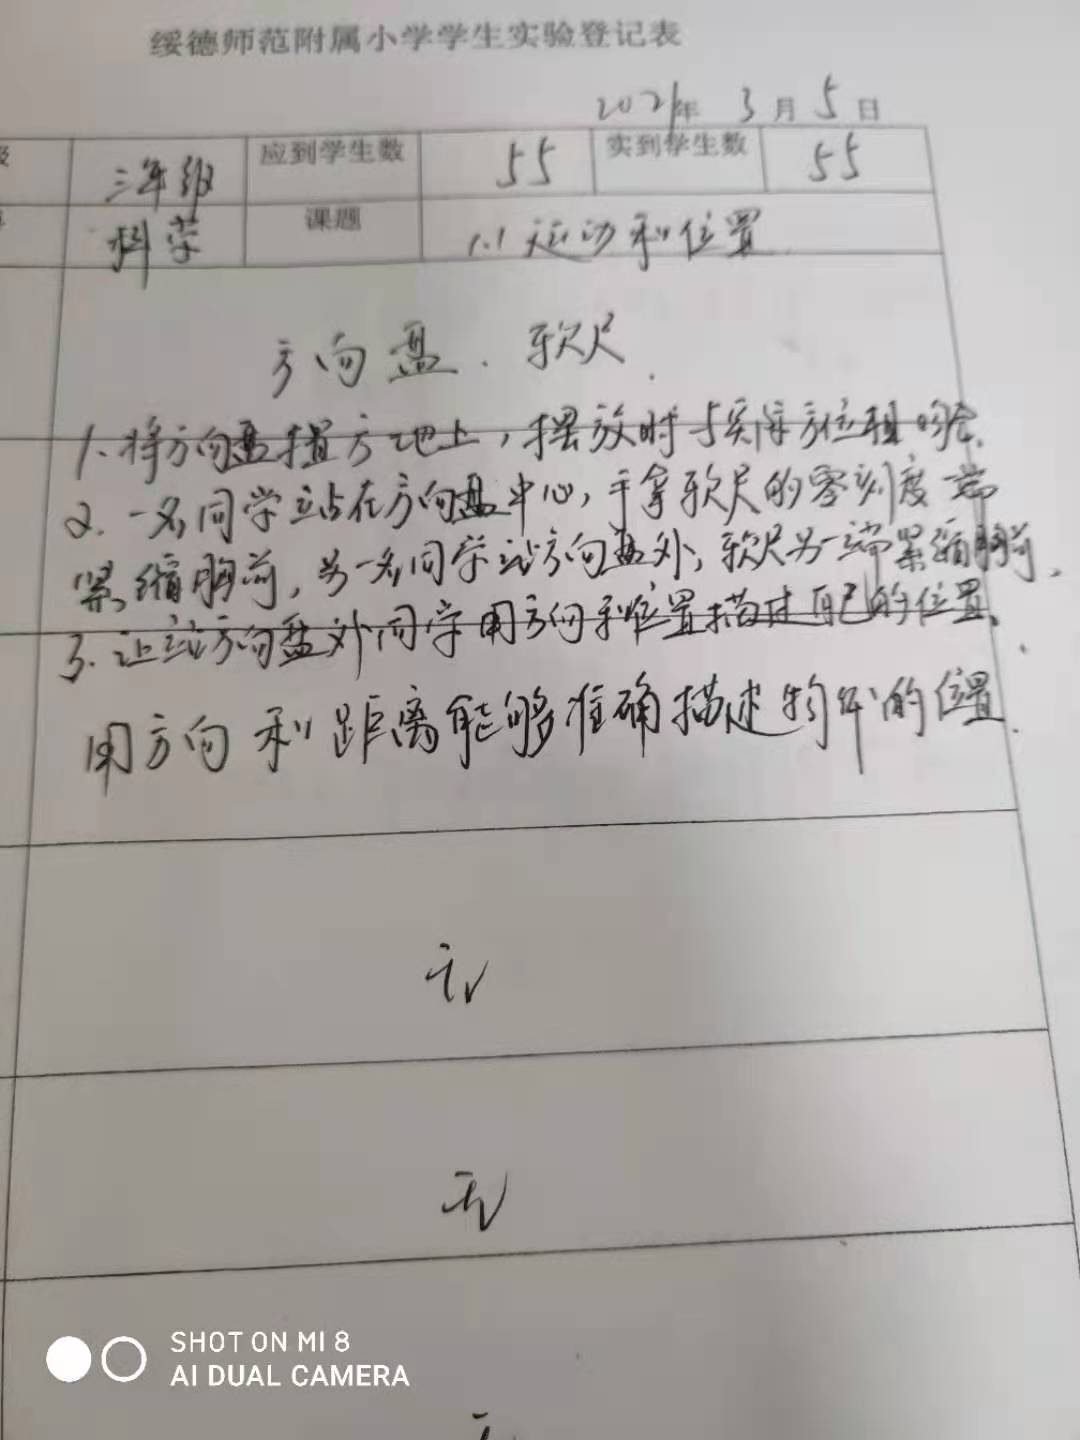 绥德师范附属小学学生实验登记表
2021年 3月5日
级 三年级 应到学生数 55 实到学生数 55
科学 课题 1.1 运动和位置
方向盘. 软尺.
1. 将方向盘摆置方地上，摆放时与实际方位相吻合.
2. 一名同学站在方向盘中心，手拿软尺的零刻度端
紧缩胸前，另一名同学站方向盘外，软尺另一端紧缩胸前.
3. 让站方向盘外同学用方向和位置描述自己的位置.
用方向和距离能够准确描述物体的位置.
无
无
SHOT ON MI 8
AI DUAL CAMERA